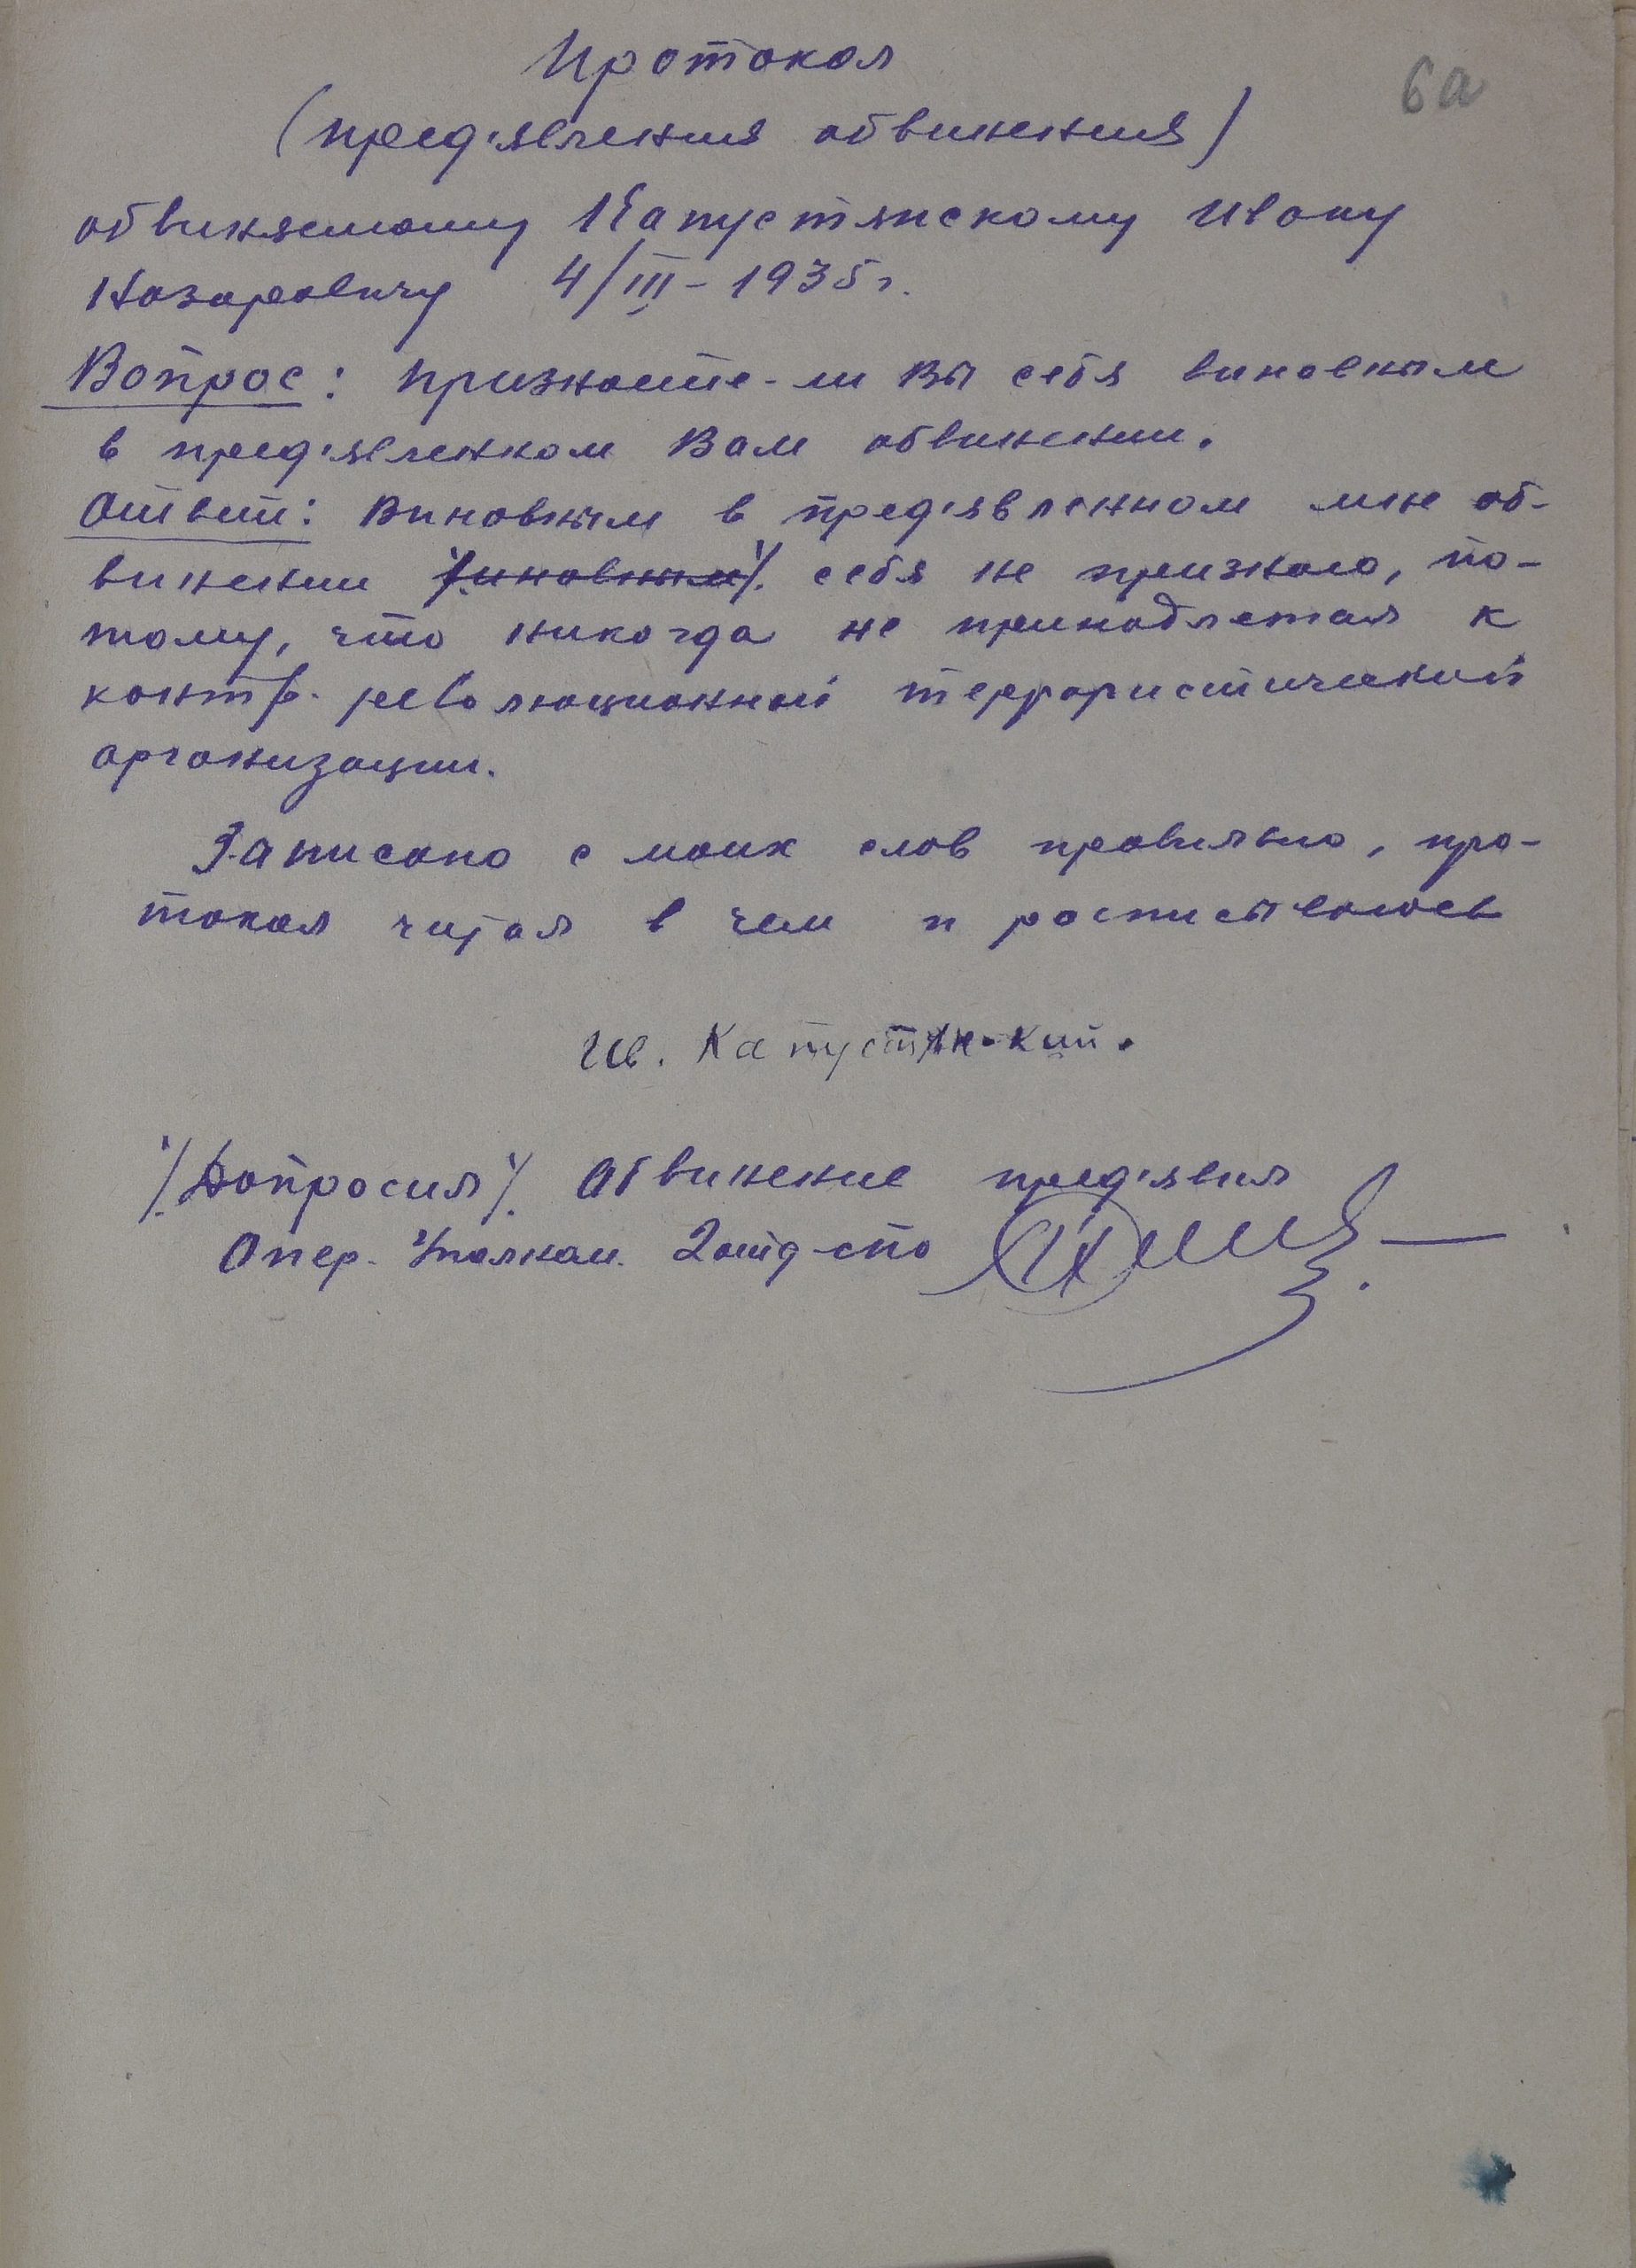 6а
Протокол
(пред'явления обвинения)
обвиняемому Капустянскому Ивану
Назаровичу 4/III-1935г.
Вопрос: признаете-ли Вы себя виновным
в пред'явленном Вам обвинении.
Ответ: Виновным в пред'явленном мне об-
винении виновным себя не признаю, по-
тому, что никогда не принадлежал к
контр-революционной террористической
организации.
Записано с моих слов правильно, про-
токол читал в чем и росписываюсь
Ив. Капустянский.
Допросил Обвинение пред'явил
Опер. Уполном. 2 отд. СПО